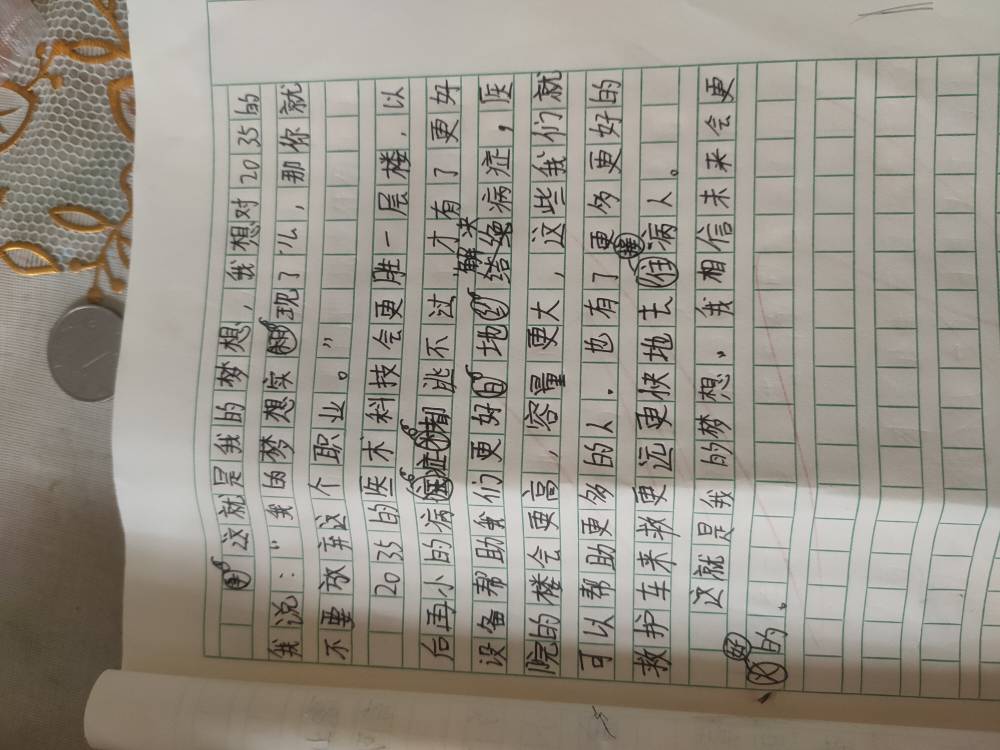 这就是我的梦想，我想对2035的
我说：“我的梦想实现了么，那你就
不要放弃这个职业。”
2035的医术科技会更胜一层楼，以
后再小的病症都逃不过，才有了更好
设备帮助我们更好地解决绝病症，医
院的楼会要高，容量更大，这些我们就
可以帮助更多的人．也有了更多更好的
救护车来救更远更快地去救病人。
这就是我的梦想。我相信未来会更
好的。